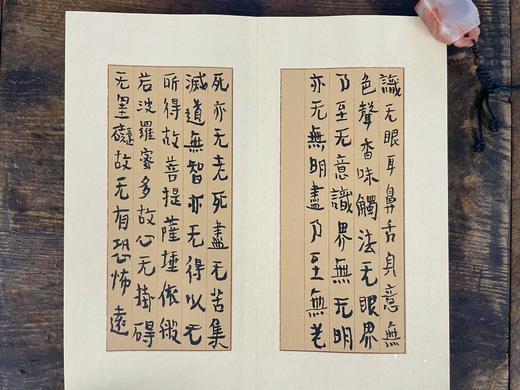 識无眼耳鼻舌身意無
色聲香味觸法无眼界
乃至无意識界無无明
亦无無明盡乃至無老
死亦无老死盡无苦集
滅道無智亦无得以无
所得故菩提薩埵依般
若波羅蜜多故心无掛碍
无罣礙故无有恐怖遠